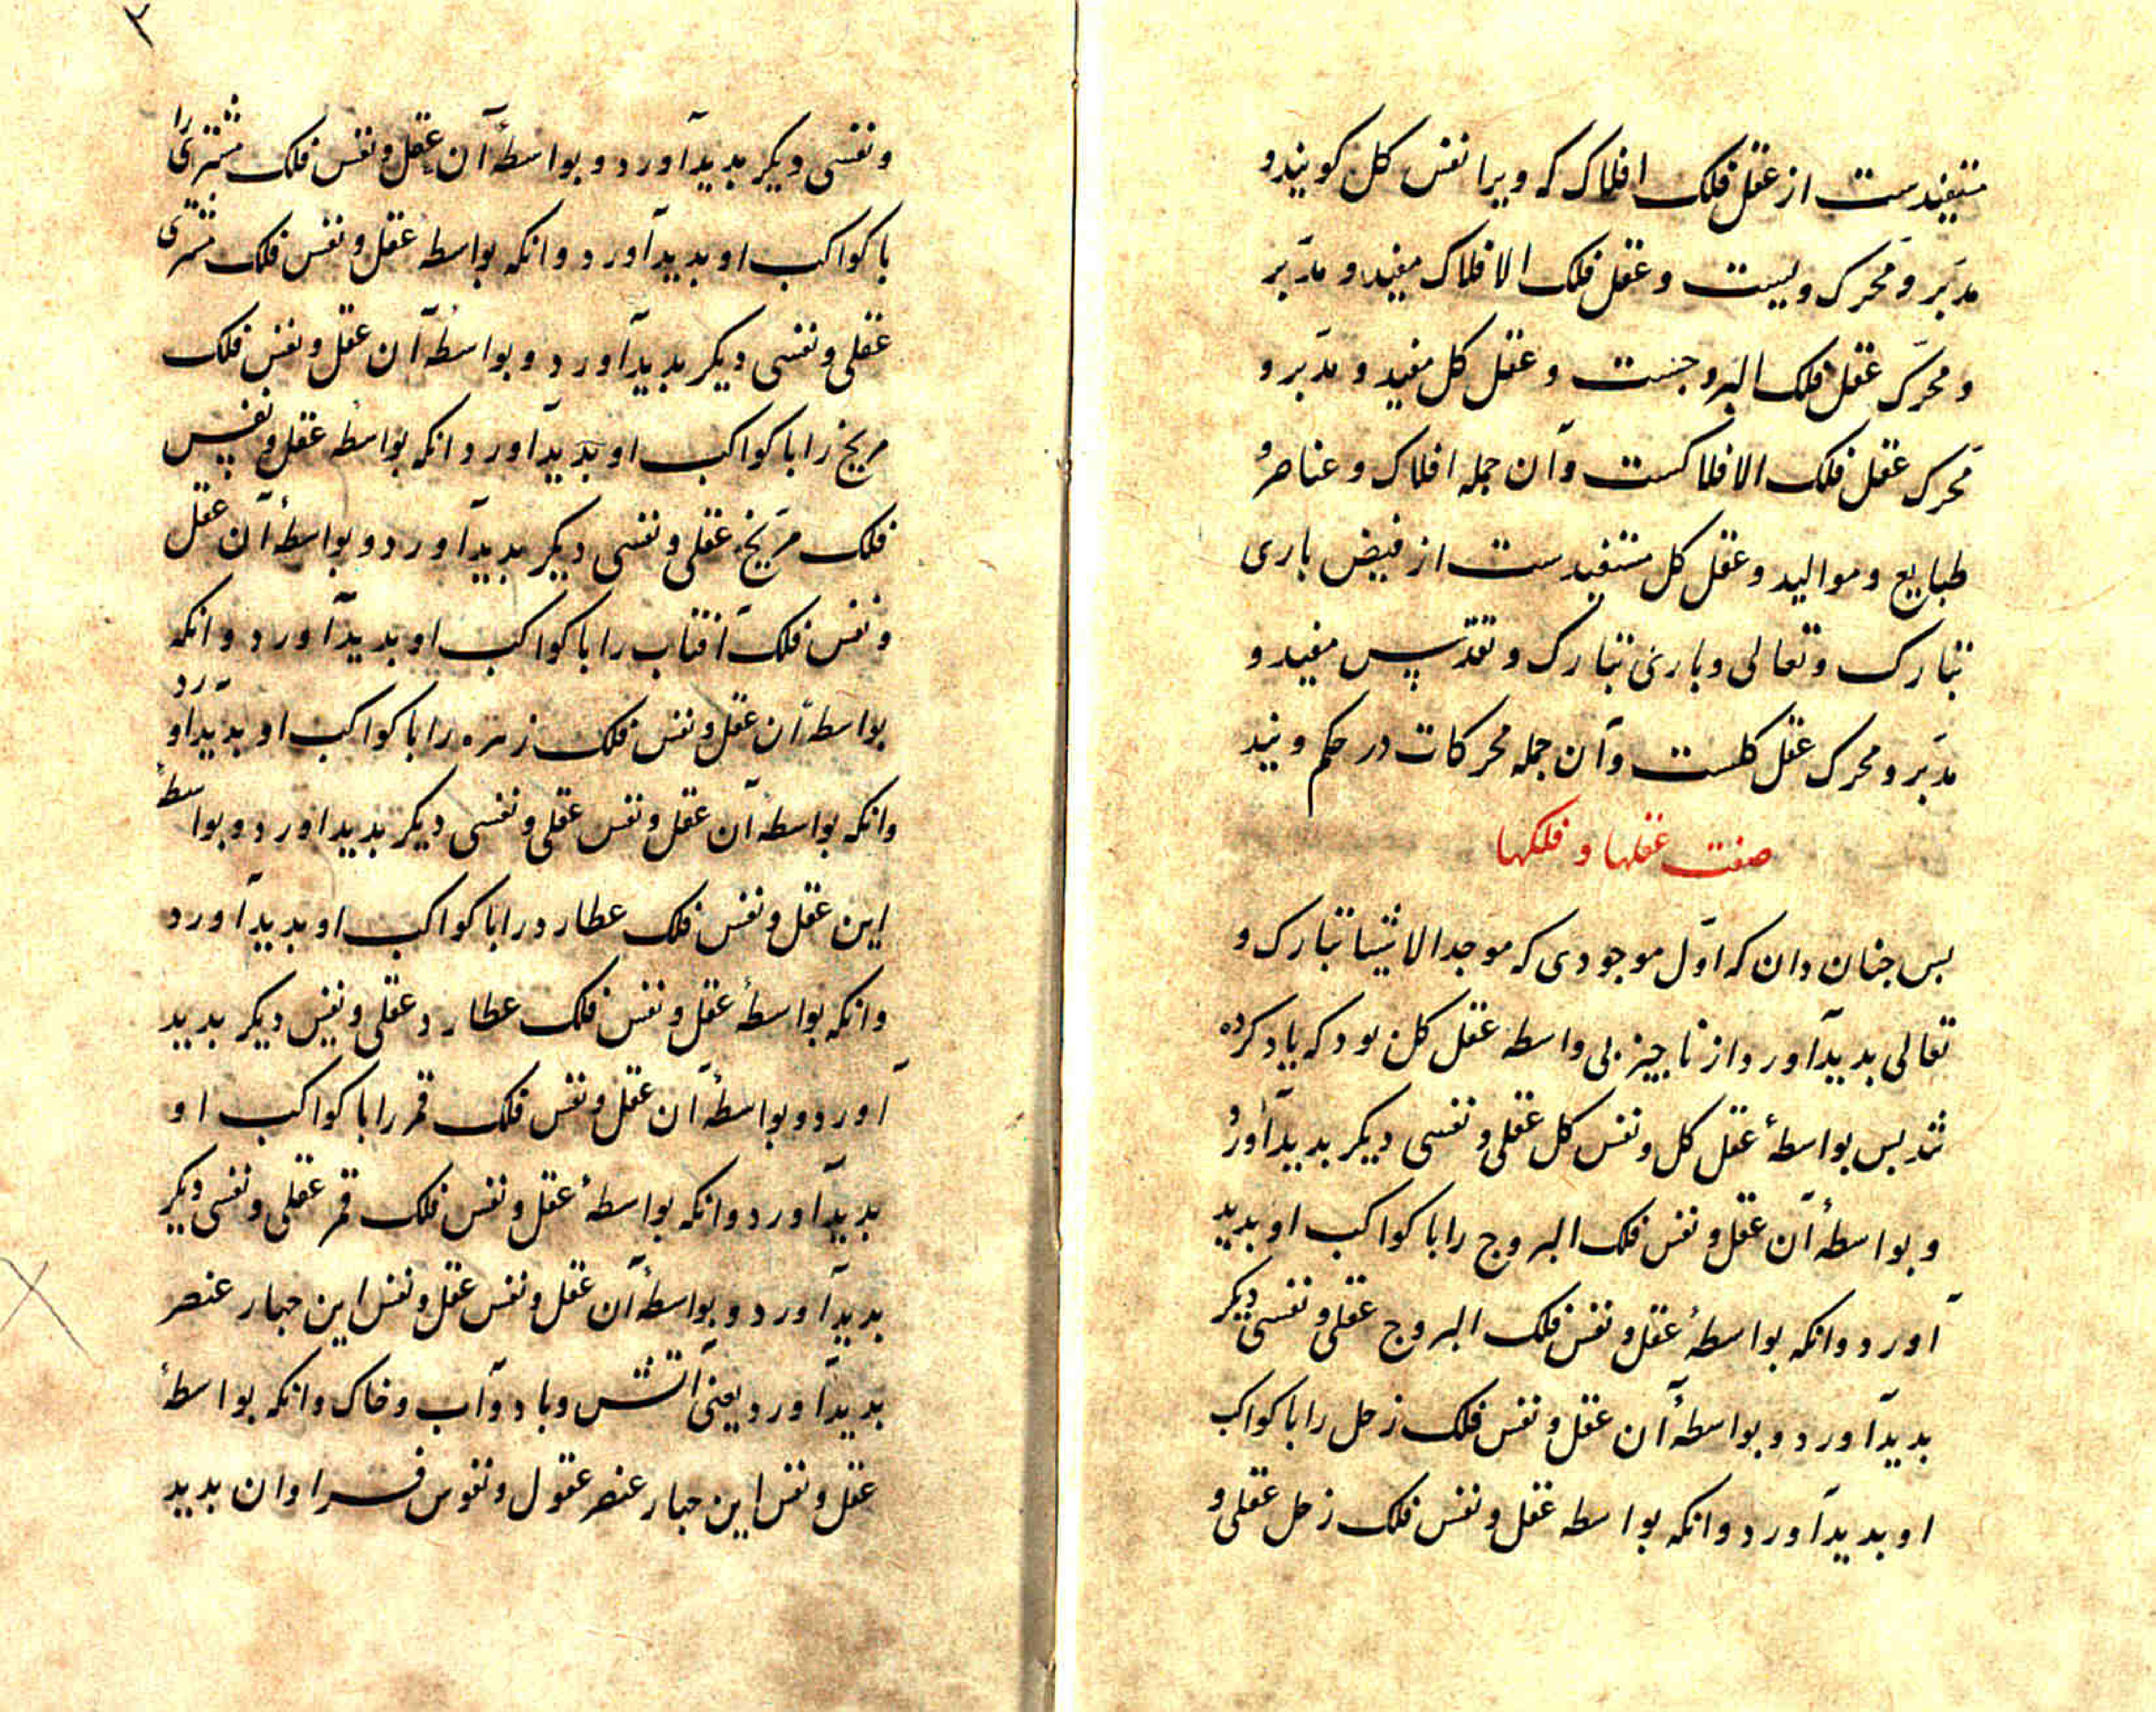 مستفیدست از عقل فلک افلاک که ویرا نفس کل کویند و
مدبر و محرک ویست و عقل فلک الافلاک مفید و مدبر
و محرک عقل فلک البروجست و عقل کل مفید و مدبر و
محرک عقل فلک الافلاکست و آن جمله افلاک و عناصر و
طبایع و موالید و عقل کل مستفیدست از فیض باری
تبارک و تعالی و باری تبارک و تقدس مفید و
مدبر و محرک عقل کلست و آن جمله محرکات در حکم ویند
صفت عقلها و فلکها
بس جنان دان که اول موجودی که موجد الاشیا تبارک و
تعالی بدید آورد از ناجیز بی واسطه عقل کل بود که یاد کرده
شد بس بواسطهٔ عقل کل و نفس کل عقلی و نفسی دیکر بدید آورد
و بواسطهٔ آن عقل و نفس فلک البروج را با کواکب او بدید
آورد و انکه بواسطهٔ عقل و نفس فلک البروج عقلی و نفسی دیکر
بدید آورد و بواسطهٔ آن عقل و نفس فلک زحل را با کواکب
او بدید آورد و انکه بواسطه عقل و نفس فلک زحل عقلی و
۲
و نفسی دیکر بدید آورد و بواسطهٔ آن عقل و نفس فلک مشتری را
با کواکب او بدید آورد و انکه بواسطه عقل و نفس فلک مشتری
عقلی و نفسی دیکر بدید آورد و بواسطهٔ آن عقل و نفس فلک
مریخ را با کواکب او بدید آورد انکه بواسطه عقل و نفس
فلک مریخ عقلی و نفسی دیکر بدید آورد و بواسطهٔ آن عقل
و نفس فلک آفتاب را با کواکب او بدید آورد و انکه
بواسطهٔ ان عقل و نفس فلک زهره را با کواکب او بدید آورد
وانکه بواسطهٔ آن عقل و نفس عقلی و نفسی دیکر بدید اورد و بواسطهٔ
این عقل و نفس فلک عطارد را با کواکب او بدید آورد
وانکه بواسطهٔ عقل و نفس فلک عطارد عقلی و نفس دیکر بدید
آورد و بواسطهٔ آن عقل و نفس فلک قمر را با کواکب او
بدید آورد و انکه بواسطهٔ عقل و نفس فلک قمر عقلی و نفسی دیکر
بدید آورد و بواسطهٔ آن عقل و نفس عقل و نفس این جهار عنصر
بدید آورد یعنی آتش و باد و آب و خاک وانکه بواسطهٔ
عقل و نفس این جهار عنصر عقول و نفوس فراوان بدید